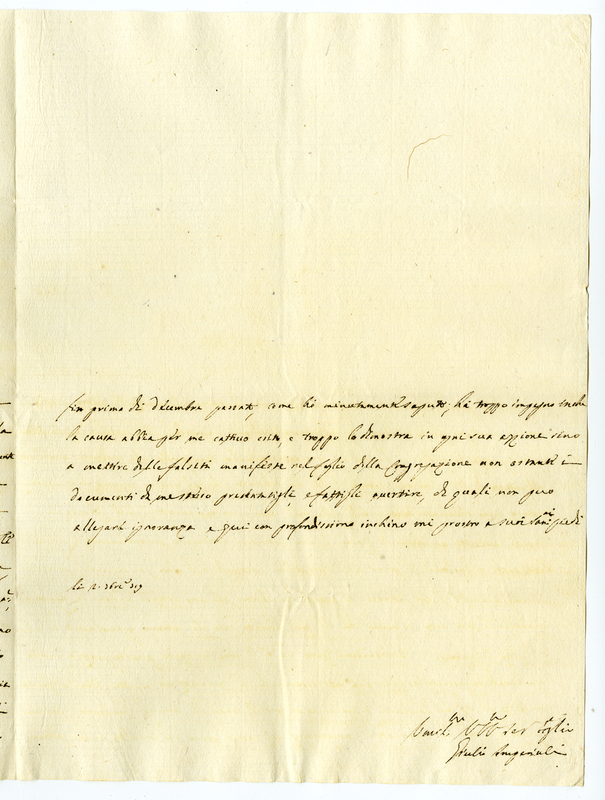 fin primo di Decembre passato, come hò minutamente saputo, hà troppo impegno che
la causa abbia per me cattivo esito e troppo lo dimostra in ogni sua azzione sino
a mettere delle falsità manifeste nel foglio della Congregazione non ostante i
documenti da me stesso presentatigli, e fattigli avertire, de quali non può
allegare ignoranza e qui con profondissimo inchino mi prostro a suoi Smi piedi
li 12. Xbre
Umilmo
Giulio Imperiali